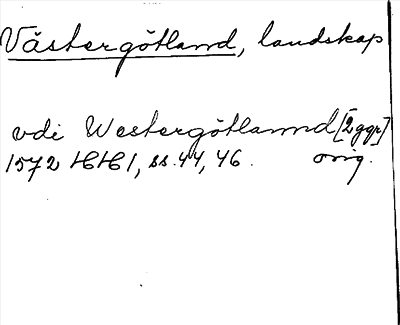 Västergötland, landskap
vdi Westergötlannd [2 ggr]
1572 HH 1, ss. 44, 46. orig.